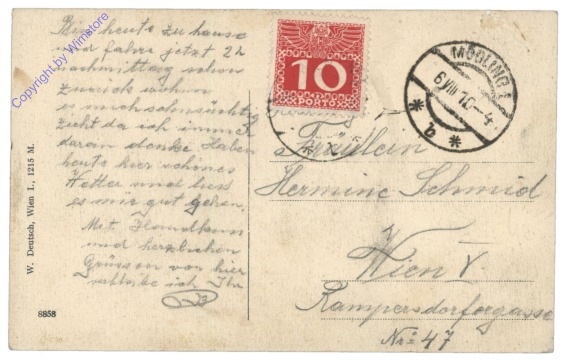 Bin heute zu hause
und fahre jetzt 2h
nachmittag schon
zurück wohin
es mich sehnsüchtig
zieht da ich immer
daran denke Haben
heute hier schönes
Wetter und liess
es mir gut gehen.
Mit Handkuss
und herzlichen
Grüssen von hier
schliesse ich Ihr
10
PORTO
MÖDLING
6 VIII 1 -4
* b *
Fräulein
Hermine Schmid
Wien V.
Rampersdorfergasse
Nr: 47
W. Deutsch, Wien I., 1215 M.
8858
Copyright by Winstore